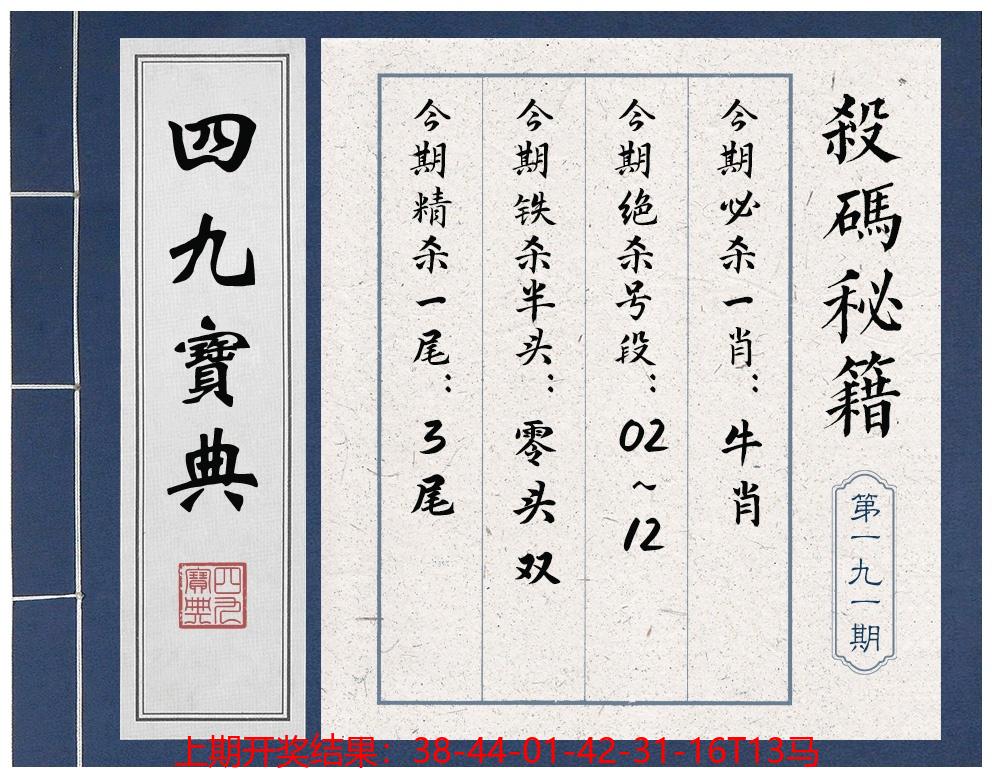 殺碼秘籍
第一九一期
今期必杀一肖：牛肖
今期绝杀号段：02~12
今期铁杀半头：零头双
今期精杀一尾：3尾
四九寶典
四九寶典
上期开奖结果：38-44-01-42-31-16T13马